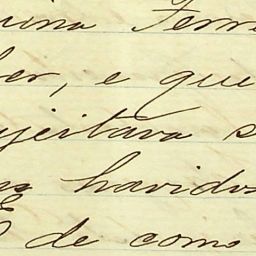 ina Ferre
ber, e que
jeitava s
as havidos
E de como